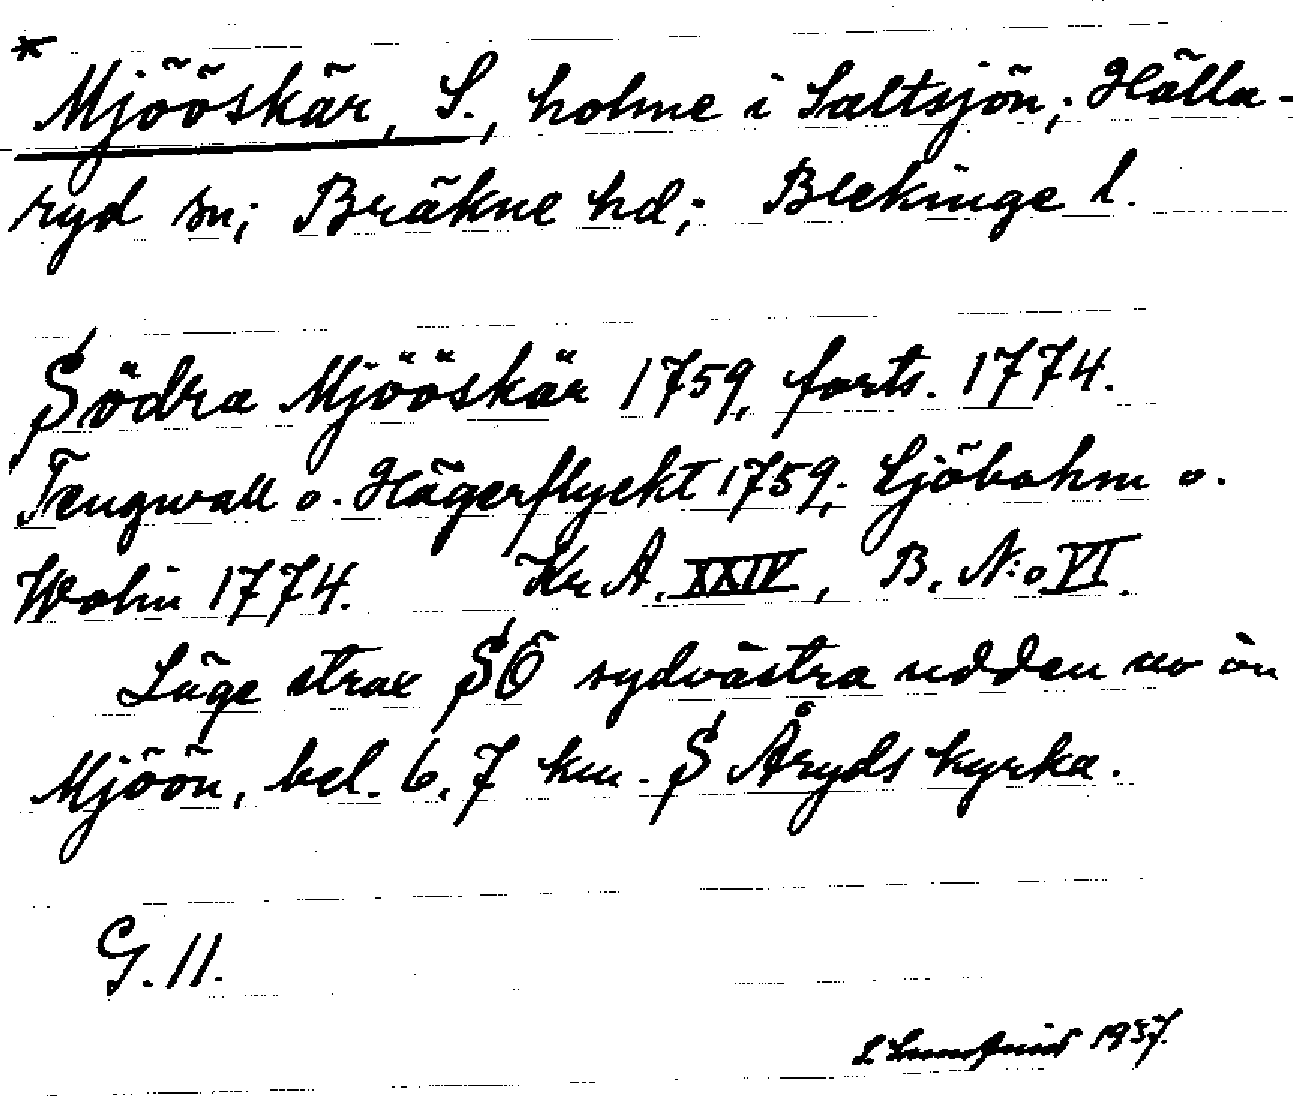 * Mjööskär, S., holme i Saltsjön; Hälla-
ryd sn; Bräkne hd; Blekinge l.
Södra Mjööskär 1759, forts. 1774.
Tengwall o. Hägerflyckt 1759; Sjöbohm o.
Wolin 1774. Kr A. XXIV, B. N:o VI.
Läge strax SÖ sydvästra udden av ön
Mjöön, bel. 6,7 km. S Åryds kyrka.
G. 11.
1937.